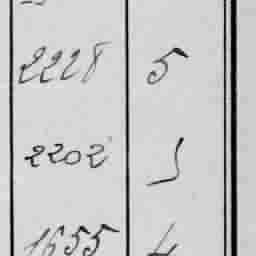 2228 5
2202 1
1655 4